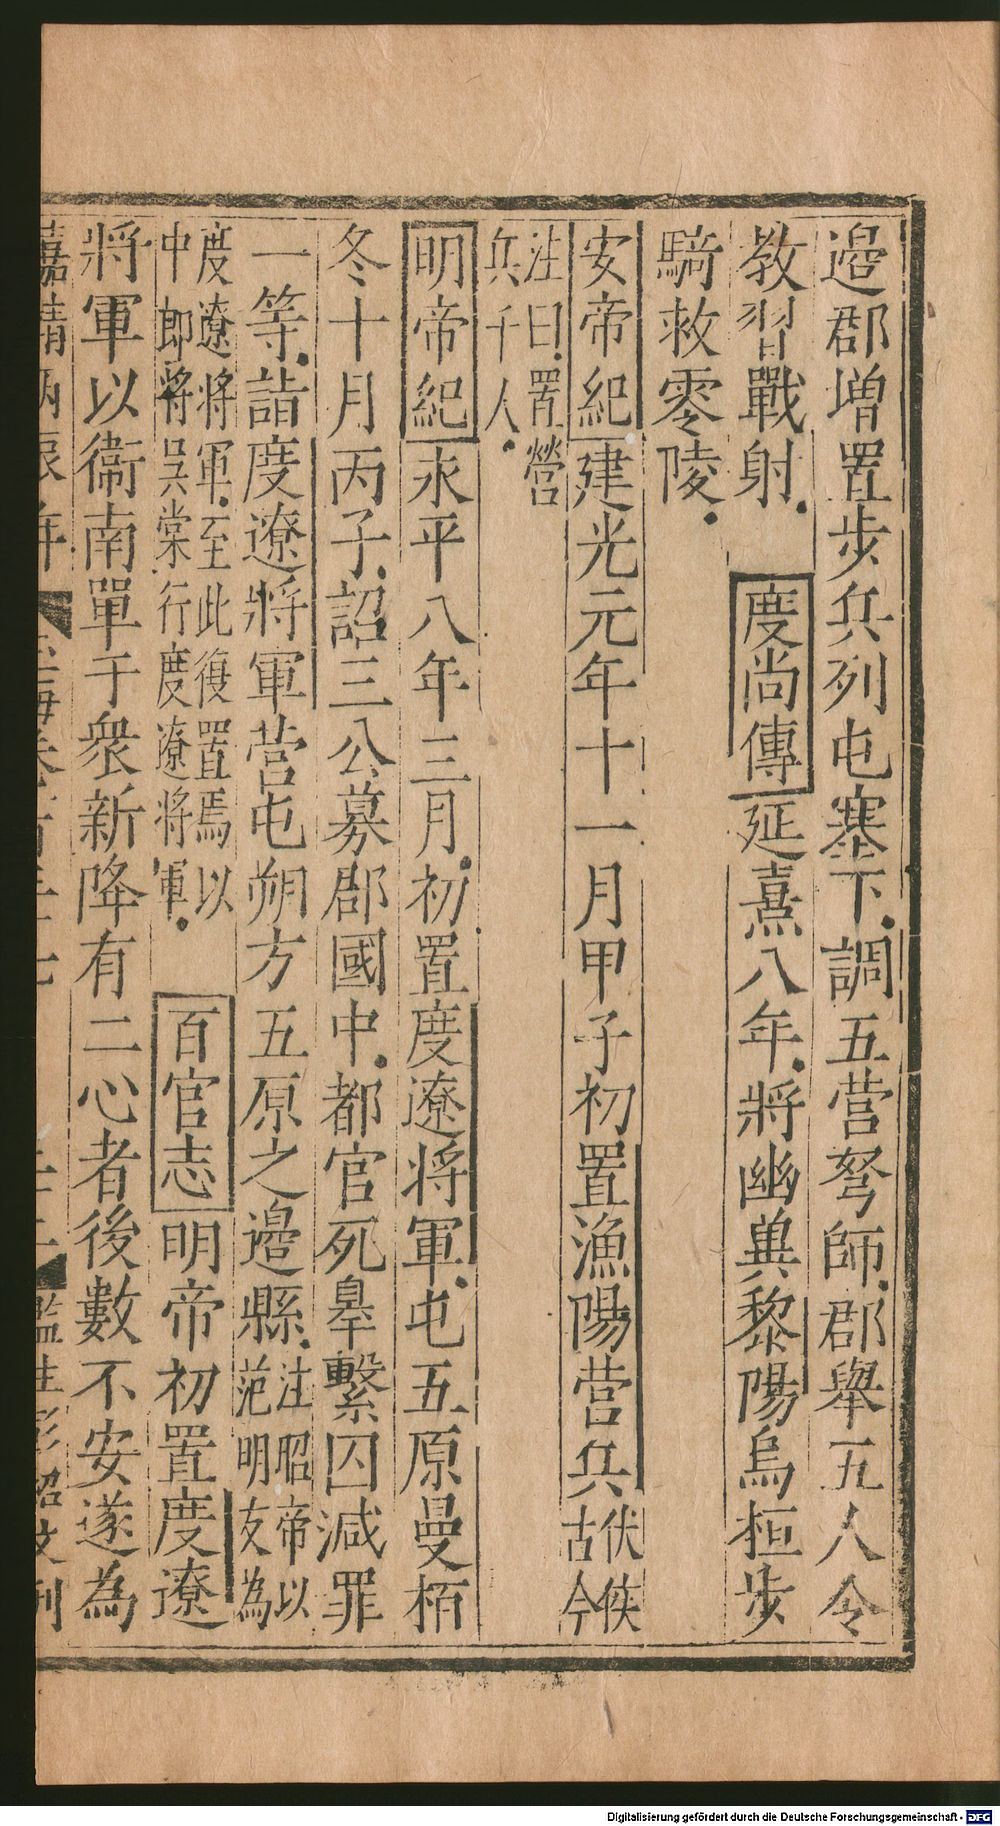 邉郡増置步兵列屯塞下調五營弩師郡舉五人令
教習戰射 度尚傳延熹八年將幽兾黎陽烏桓步
騎救零陵
安帝紀建光元年十一月甲子初置漁陽營兵伏侯
古今
注曰置營
兵千人
明帝紀永平八年三月初置度遼將軍屯五原曼栢
冬十月丙子詔三公募郡國中都官死辠繫囚減罪
一等詣度遼將軍營屯朔方五原之邉縣注昭帝以
范明友為
度遼將軍至此復置焉以
中郎將吴棠行度遼將軍
百官志明帝初置度遼
將軍以衞南單于衆新降有二心者後數不安遂為
Digitalisierung gefördert durch die Deutsche Forschungsgemeinschaft - DFG